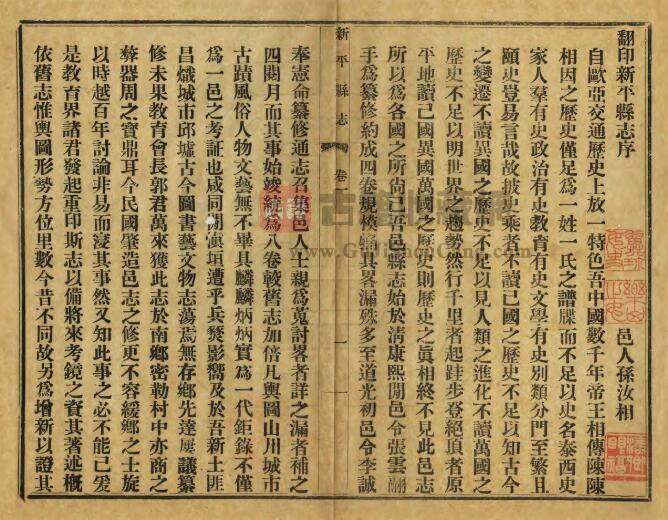 翻印新平縣志序
邑人孫汝相
自歐亞交通歷史上放一特色吾中國數千年帝王相傳陳陳
相因之歷史僅足爲一姓一氏之譜牒而不足以史名泰西史
家人羣有史政治有史教育有史文學有史別類分門至繁且
頤史豈易言哉故披史乘者不讀己國之歷史不足以知古今
之變遷不讀異國之歷史不足以見人類之進化不讀萬國之
歷史不足以明世界之趨勢然行千里者起跬步登絕頂者原
平地讀己國異國萬國之歷史則歷史之眞相終不見此邑志
所以爲各國之所尙已吾邑縣志始於清康熙閒邑令張雲翮
手爲纂修約成四卷規模畧其畧漏殊多至道光初邑令李誠
新平縣志
卷一
一
奉憲命纂修通志召集邑人士親爲蒐討畧者詳之漏者補之
四閱月而其事始竣統爲八卷較舊志加倍凡輿圖山川城市
古蹟風俗人物文藝無不畢具麟麟炳炳實爲一代鉅錄不僅
爲一邑之考証也咸同間滇垣遭乎兵燹影嚮及於吾新土匪
昌熾城市邱墟古今圖書藝文物志蕩焉無存鄉先達屢議纂
修未果教育會長郭君萬來獲此志於南鄉密勒村中亦商之
彜器周之寶鼎耳今民國肇造邑志之修更不容緩鄉之士旋
以時越百年討論非易而寢其事然又知此事之必不能已爰
是教育界諸君發起重印斯志以備將來考鏡之資其著述槪
依舊志惟輿圖形勢方位里數今昔不同故另爲增新以證其
古籍收藏家